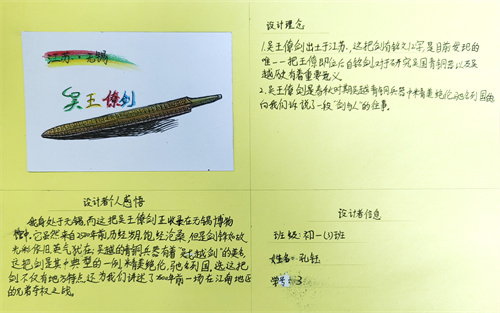 江苏·无锡
吴王僚剑
设计理念
1.吴王僚剑出土于江苏，这把剑有铭文12字，是目前发现的
唯一一把王僚即位后自铸剑，对于研究吴国青铜器以及吴
越历史有着重要意义
2.吴王僚剑是春秋时期吴越青铜兵器中精美绝伦，驰名列国的
向我们诉说了一段"剑与人"的往事。
设计者个人感悟
我身处于无锡，而这把吴王僚剑正收录在无锡博物
馆中。它虽然来自2500年前，历经岁月，饱经沧桑，但是剑锋如故
光彩依旧，英气犹在。吴越的青铜兵器有着"吴越剑"的美名
这把剑是其中典型的一例，精美绝伦，驰名列国。选这把
剑不仅有地方特点，还为我们讲述了2000年前一场在江南地区
的兄弟夺权之战。
设计者信息
班级：初一(1)班
姓名：孔钰
学号：3